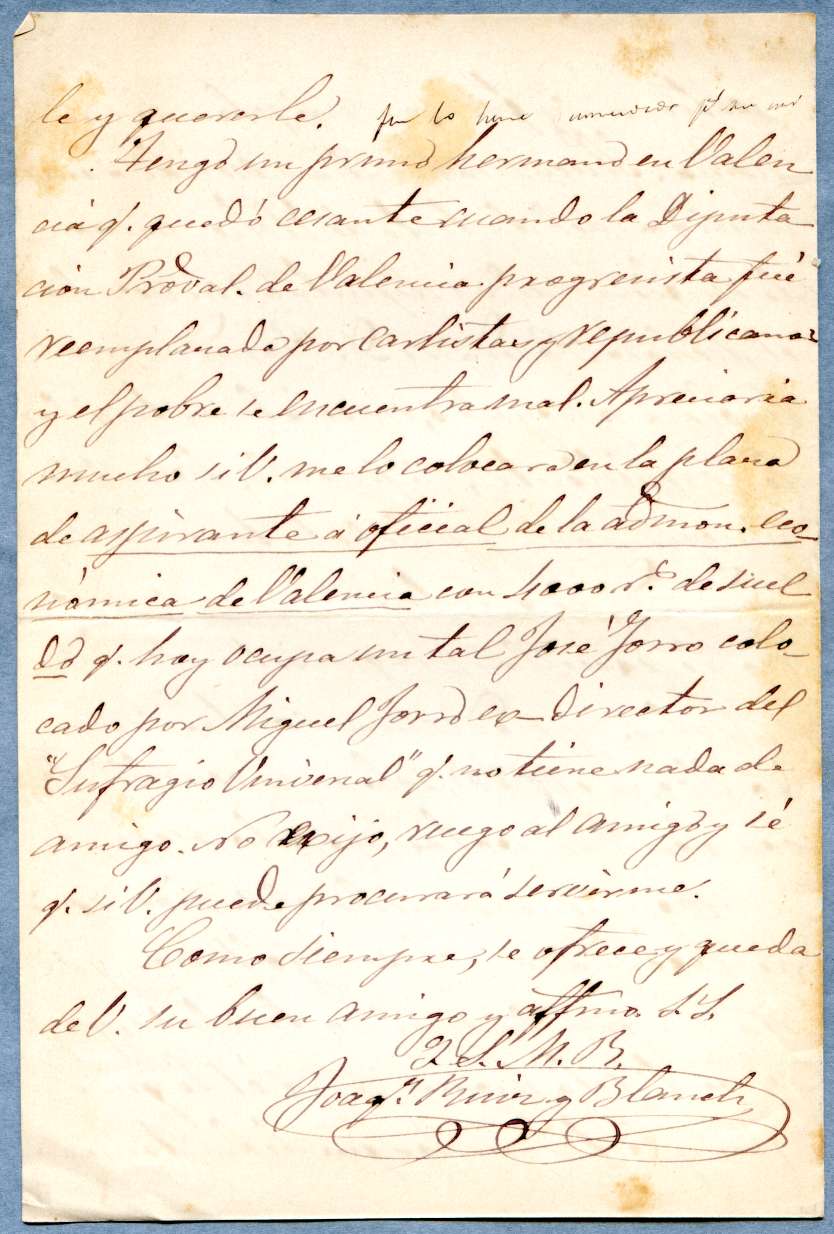 le y quererle.
Tengo un primo hermano en Valen
cia q. quedó cesante cuando la Diputa
ción Proval. de Valencia progresista fué
reemplazada por carlistas y republicanos
y el pobre se encuentra mal. Apreciaria
mucho si V. me lo colocara en la plaza
de aspirante á oficial de la admon. eco
nómica de Valencia con 4000 rs. de suel
do q. hoy ocupa un tal José Jorro colo-
cado por Miguel Jorro ex-director del
"Sufragio Universal" q. no tiene nada de
amigo. No exijo, ruego al amigo y sé
q. si V. puede procurará servirme.
Como siempre, se ofrece y queda
de V. su buen amigo y affmo. S.S.
Q.S.M.B.
Joaqn. Ruiz y Blanch